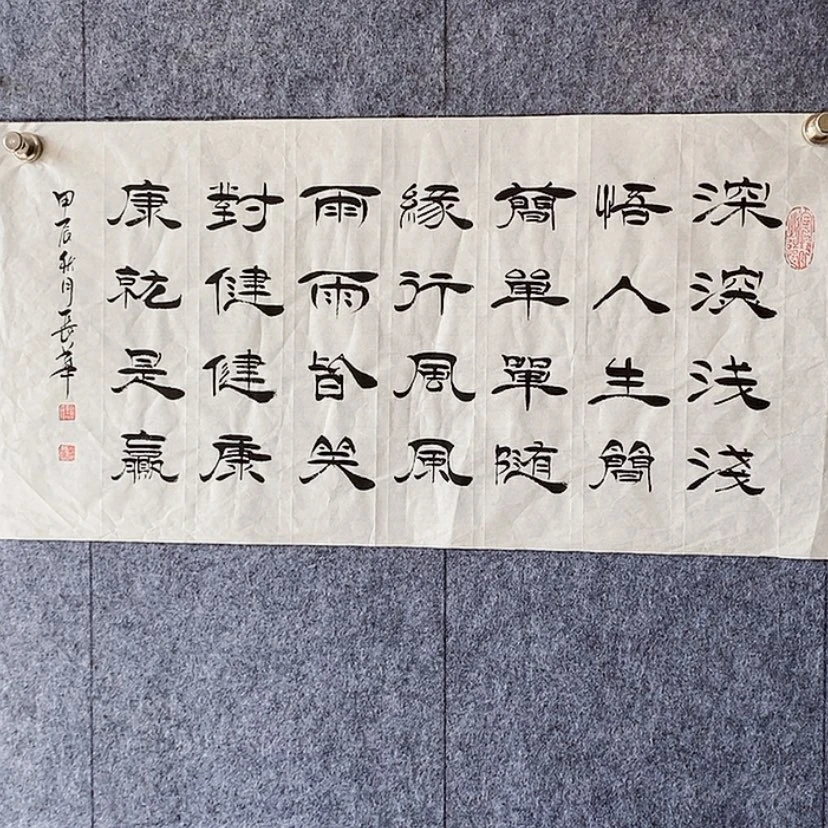 深深浅淺
悟人生簡
簡單單随
緣行風風
雨雨皆笑
對健健康
康就是贏
甲辰秋月長華